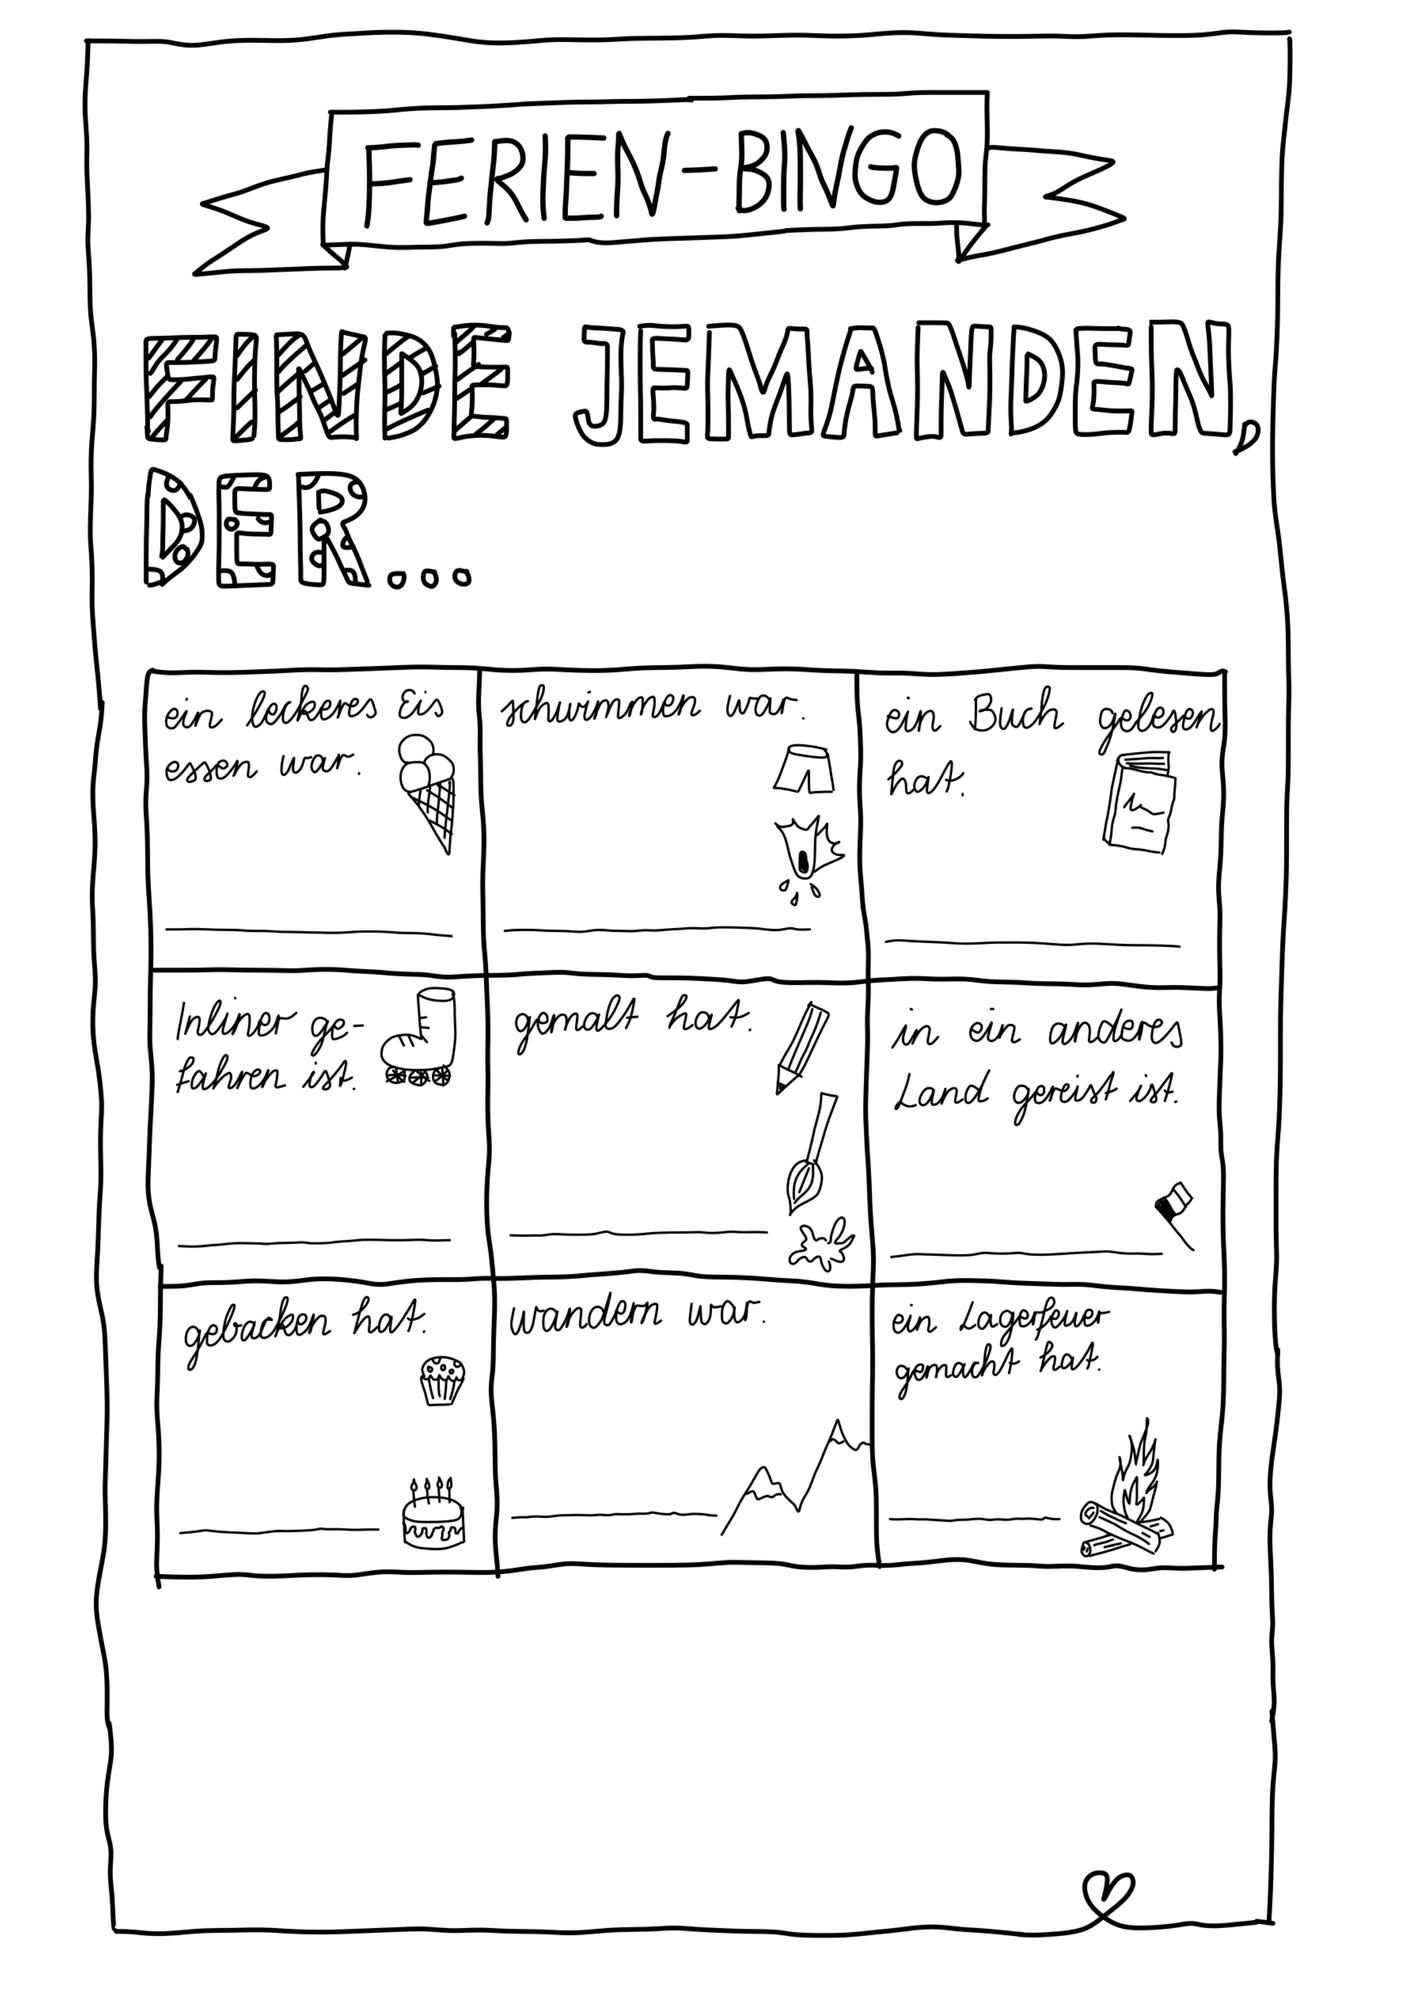 FERIEN-BINGO
FINDE JEMANDEN,
DER...
ein leckeres Eis
essen war.
schwimmen war.
ein Buch gelesen
hat.
Inliner ge-
fahren ist.
gemalt hat.
in ein anderes
Land gereist ist.
gebacken hat.
wandern war.
ein Lagerfeuer
gemacht hat.